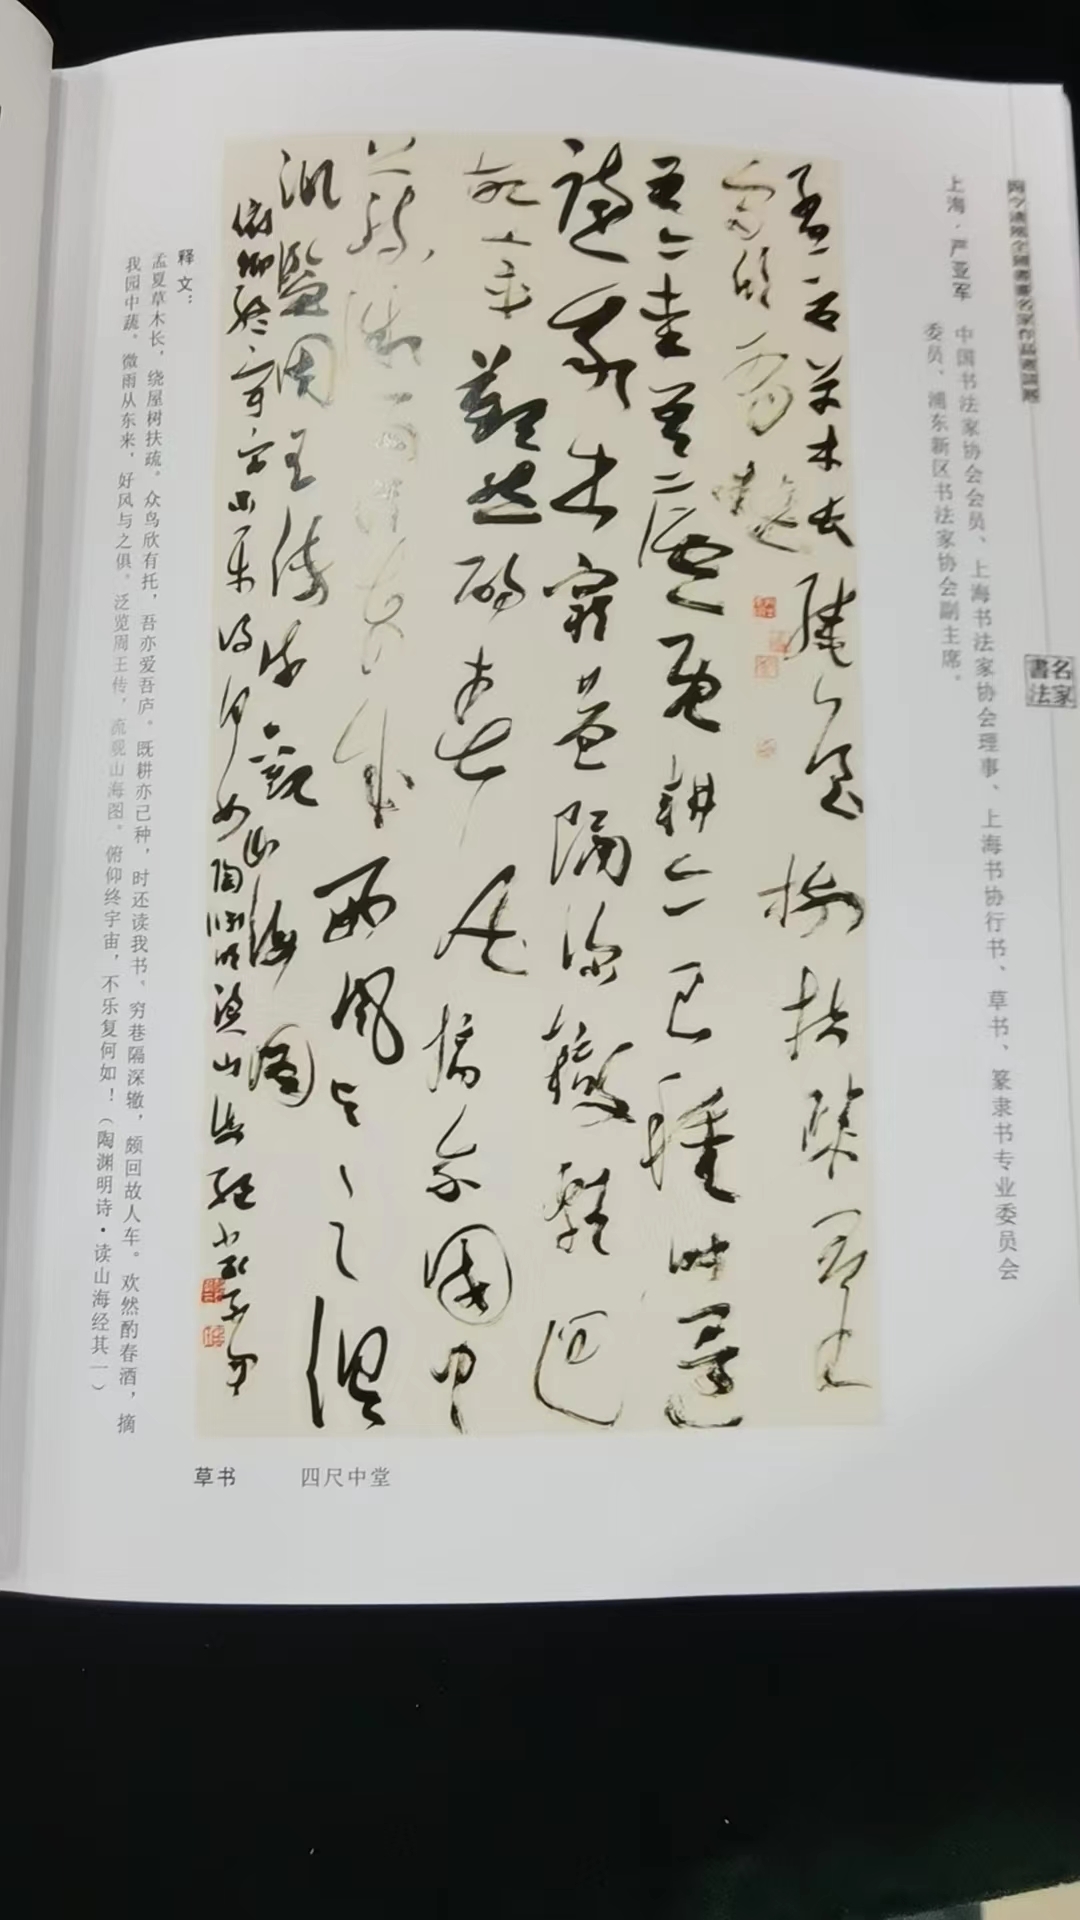 上海·严亚军　中国书法家协会会员、上海书法家协会理事、上海书协行书、草书、篆隶书专业委员会
委员、浦东新区书法家协会副主席。
名家
書法
孟夏草木长繞屋樹扶疎众鳥
欣有托
吾亦愛吾廬既耕亦已種时還
讀我書窮巷隔深轍頗迴
故人車歡然酌春酒摘我園中
蔬微雨從東來好風与之俱
泛覽周王傳流觀山海圖
俯仰终宇宙不樂復何如陶渊明讀山海經
释文：
孟夏草木长，绕屋树扶疏。众鸟欣有托，吾亦爱吾庐。既耕亦己种，时还读我书。穷巷隔深辙，颇回故人车。欢然酌春酒，摘
我园中蔬。微雨从东来，好风与之俱。泛览周王传，流观山海图。俯仰终宇宙，不乐复何如！（陶渊明诗·读山海经其一）
草书　四尺中堂